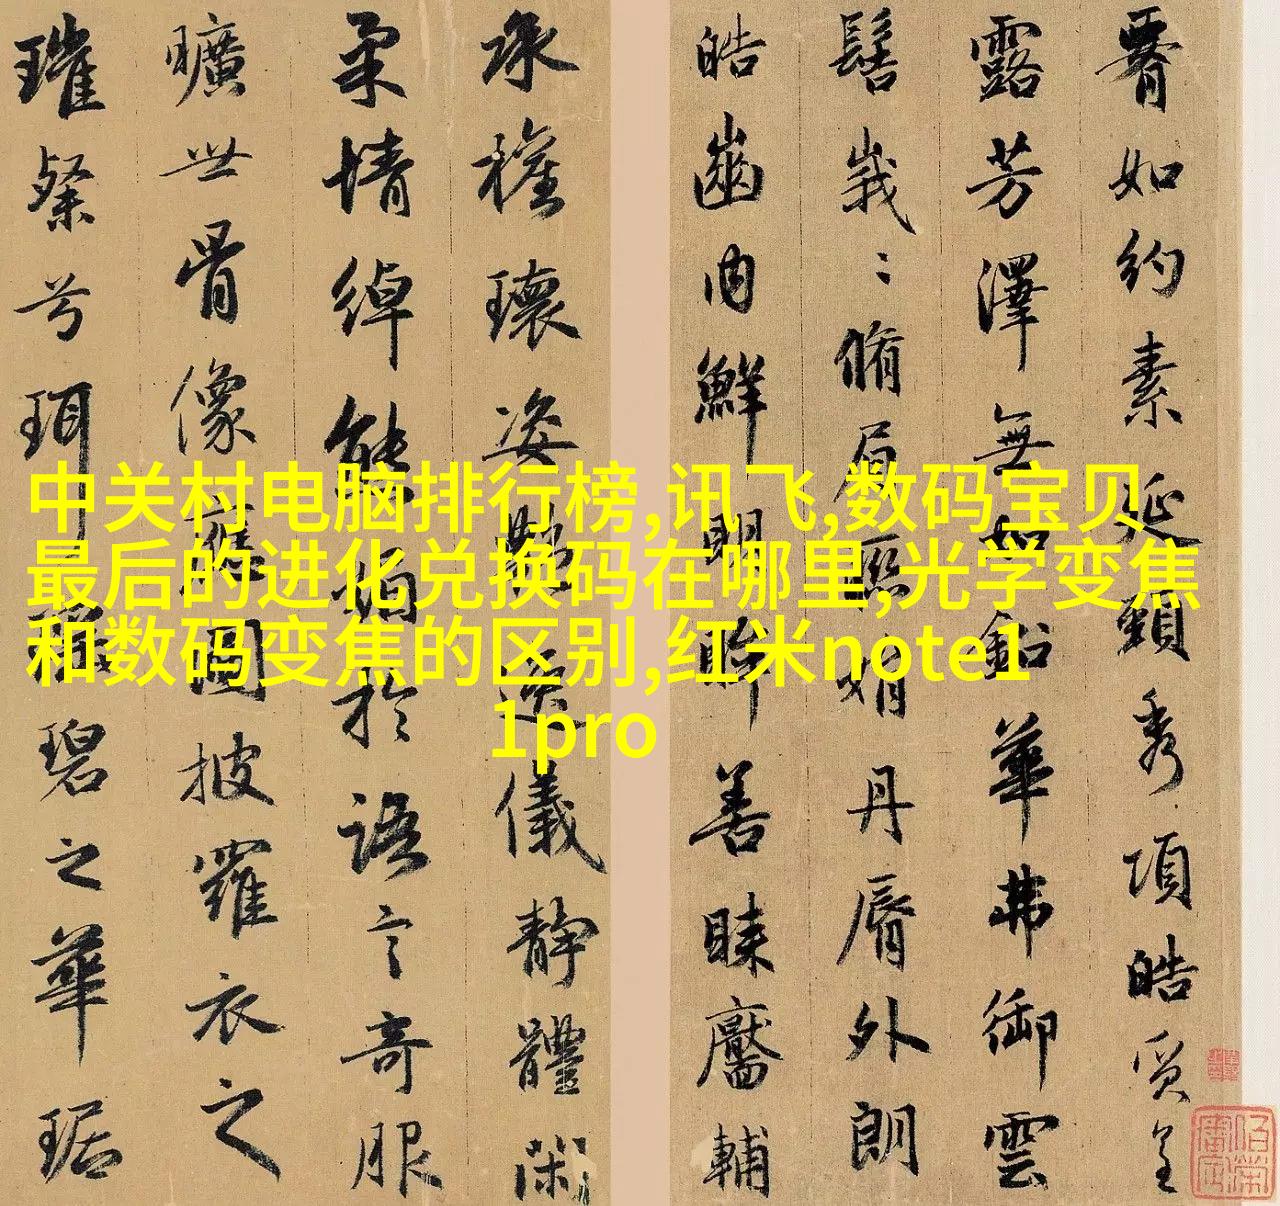 中关村电脑排行榜,讯飞,数码宝贝
最后的进化兑换码在哪里,光学变焦
和数码变焦的区别,红米note1
1pro
肩如約素延頸秀項皓質呈
露芳澤無加鉛華弗御雲
髻峩〻脩眉聯娟丹脣外朗
皓齒内鮮明眸善睞靨輔
承權瓌姿豔逸儀靜體閑
柔情綽態媚於語言奇服
曠世骨像應圖披羅衣之
璀粲兮珥瑤碧之華琚